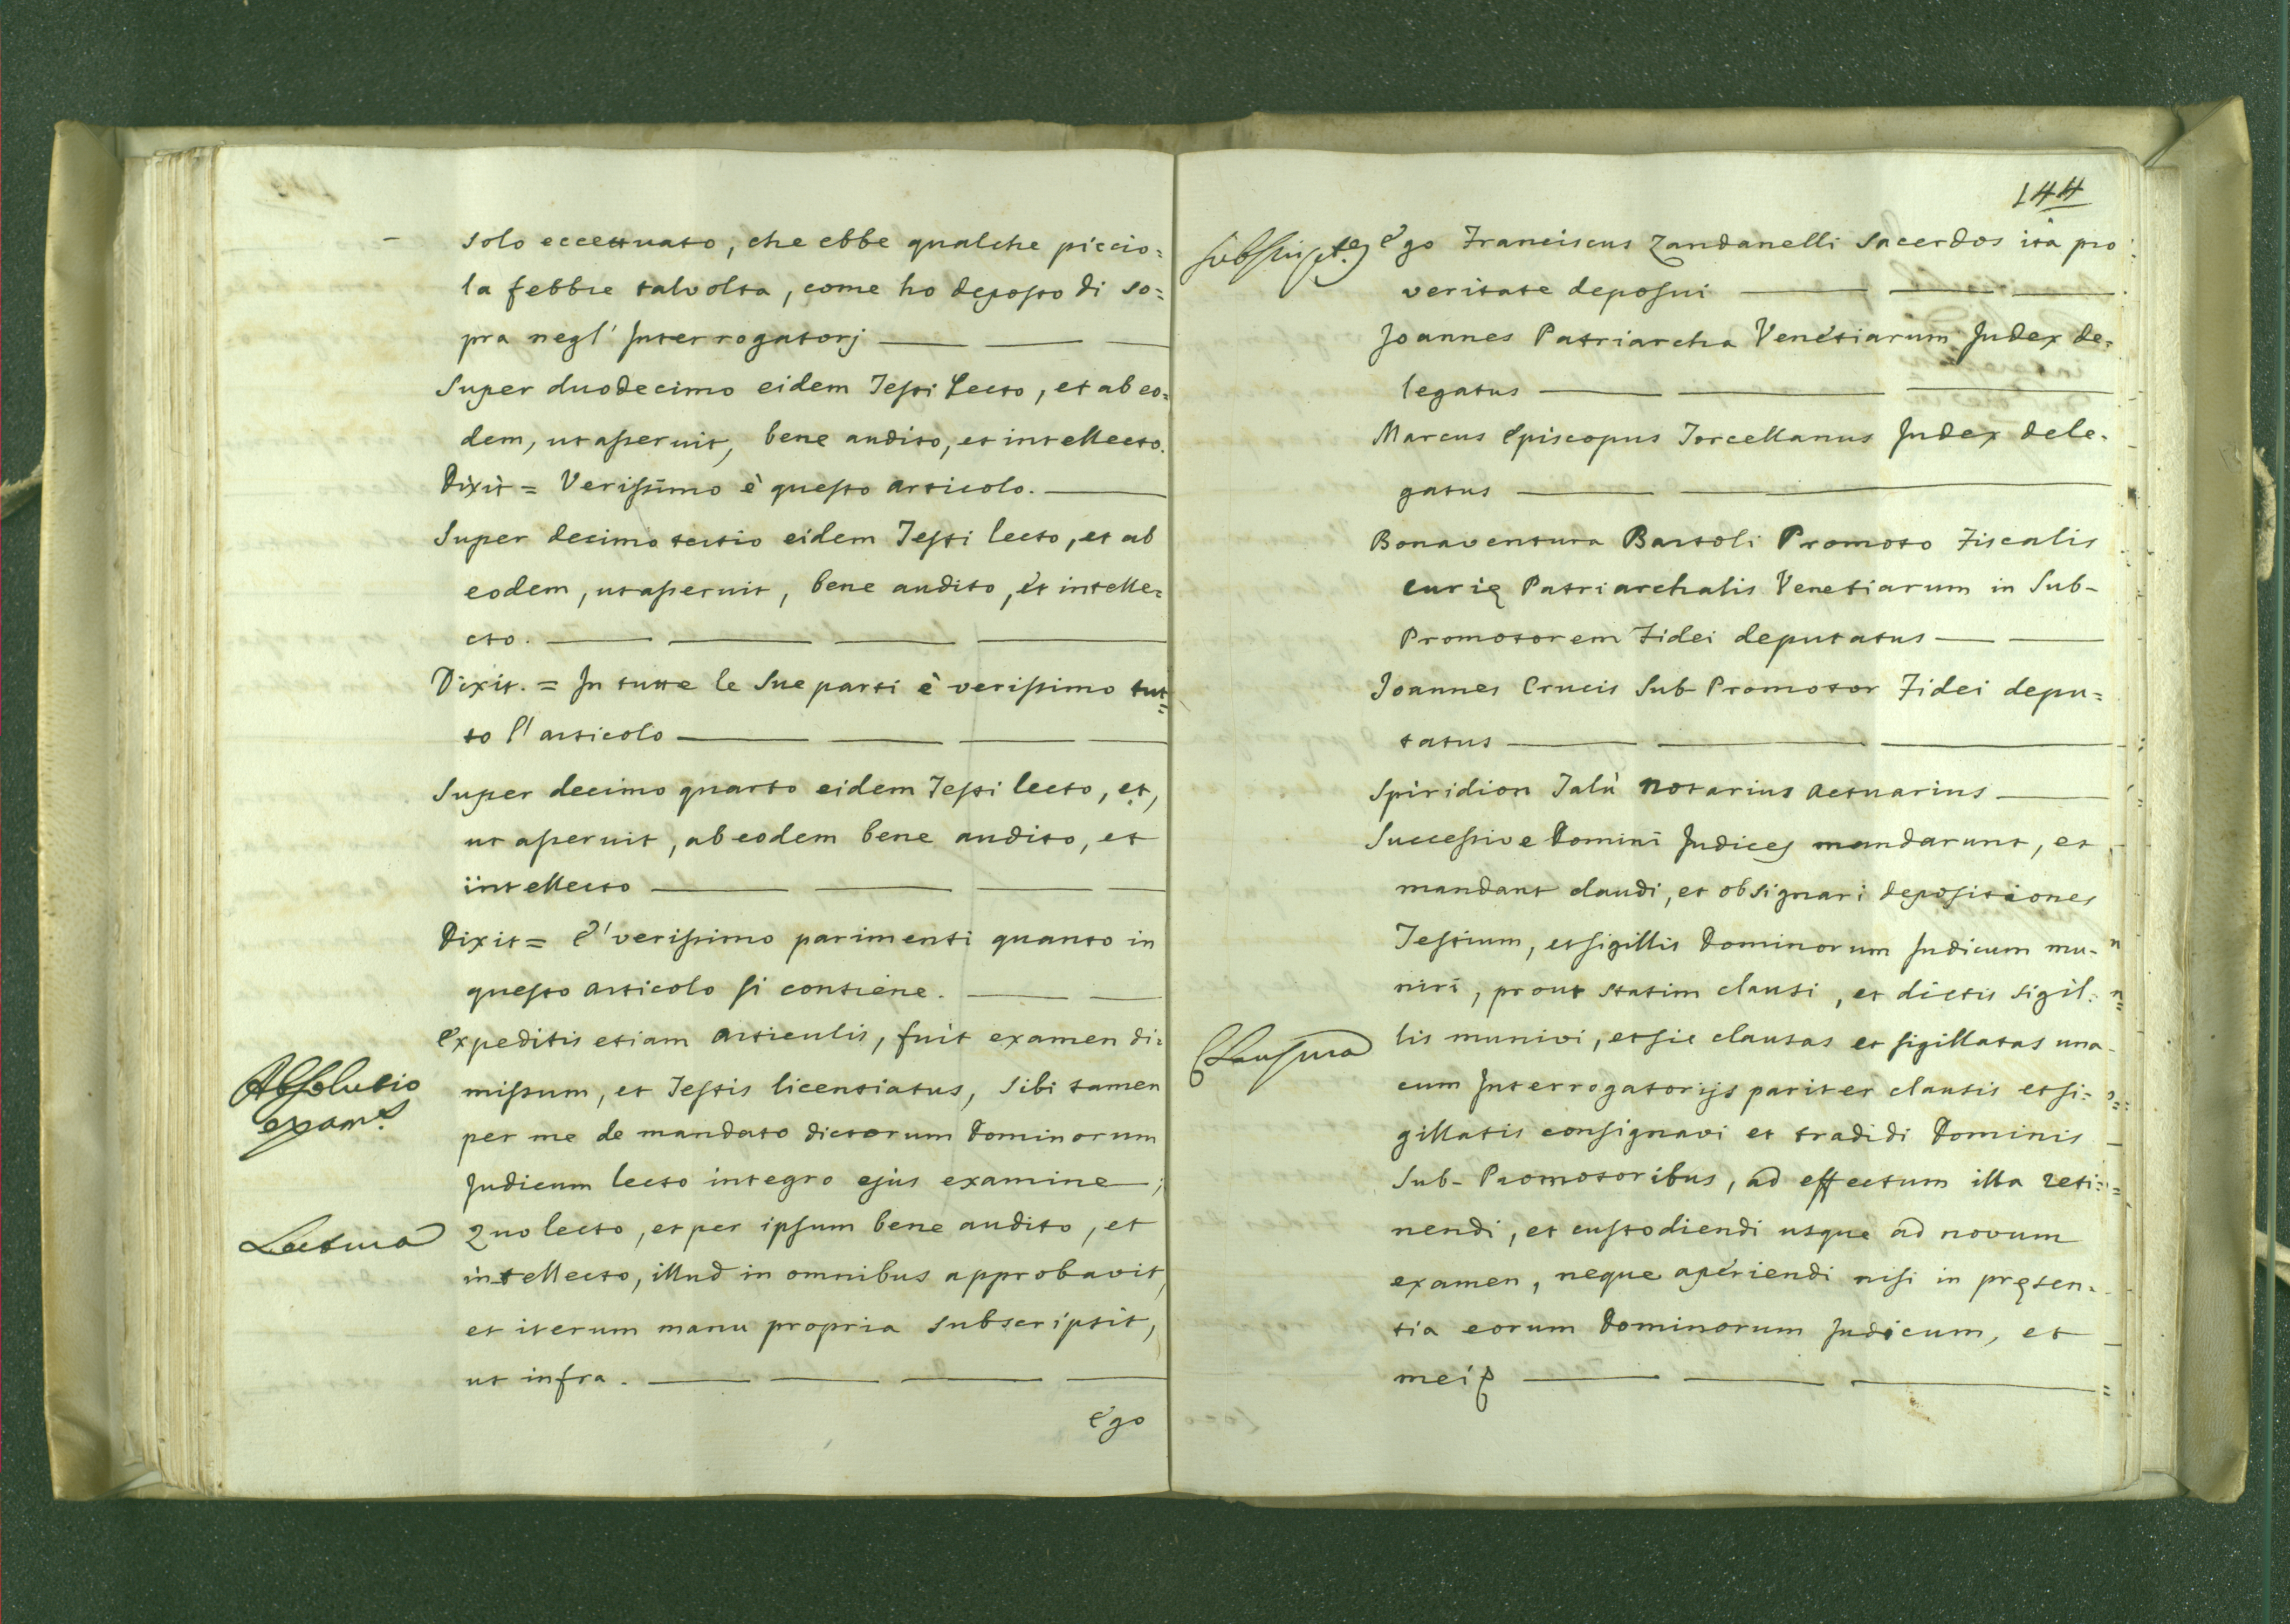 solo eccettuato, che ebbe qualche piccio=
la febbre talvolta, come ho deposto di so=
pra negl' Interrogatorj
Super duodecimo eidem Testi Lecto, et ab eo=
dem, ut asseruit, bene audito, et intellecto.
Dixit = Verissimo è questo articolo.
Super decimo tertio eidem Testi lecto, et ab
eodem, ut asseruit, bene audito, et intelle=
cto.
Dixit. = In tutte le Sue parti è verissimo tut=
to l' articolo
Super decimo quarto eidem Testi lecto, et,
ut asseruit, ab eodem bene audito, et
intellecto
Dixit = E' verissimo parimenti quanto in
questo articolo si contiene.
Expeditis etiam articulis, fuit examen di=
Absolutio
exam.s
missum, et Testis licentiatus, Sibi tamen
per me de mandato dictorum Dominorum
Judicum lecto integro ejus examine;
Lectura
Quo lecto, et per ipsum bene audito, et
intellecto, illud in omnibus approbavit,
et iterum manu propria subscripsit,
ut infra.
Ego
144
Ego Franciscus Zandanelli Sacerdos ita pro
veritate deposui
Joannes Patriarcha Venetiarum Judex de=
legatus
Marcus Episcopus Torcellanus Judex dele=
gatus
Bonaventura Bartoli Promoto Fiscalis
Curię Patriarchalis Venetiarum in Sub-
Promotorem Fidei deputatus
Joannes Crucis Sub-Promotor Fidei depu=
tatus
Spiridion Talù Notarius Actuarius
Successive Domini Judices mandarunt, et
mandant claudi, et obsignari depositiones
Testium, et sigillis Dominorum Judicum mu-
niri, prout statim clausi, et dictis sigil=
Clausura
lis munivi, et sic clausas et sigillatas una
cum Interrogatorijs pariter clausis et si=
gillatis consignavi et tradidi Dominis
Sub-Promotoribus, ad effectum illa reti=
nendi, et custodiendi usque ad novum
examen, neque aperiendi nisi in pręsen=
tia eorum Dominorum Judicum, et
mei